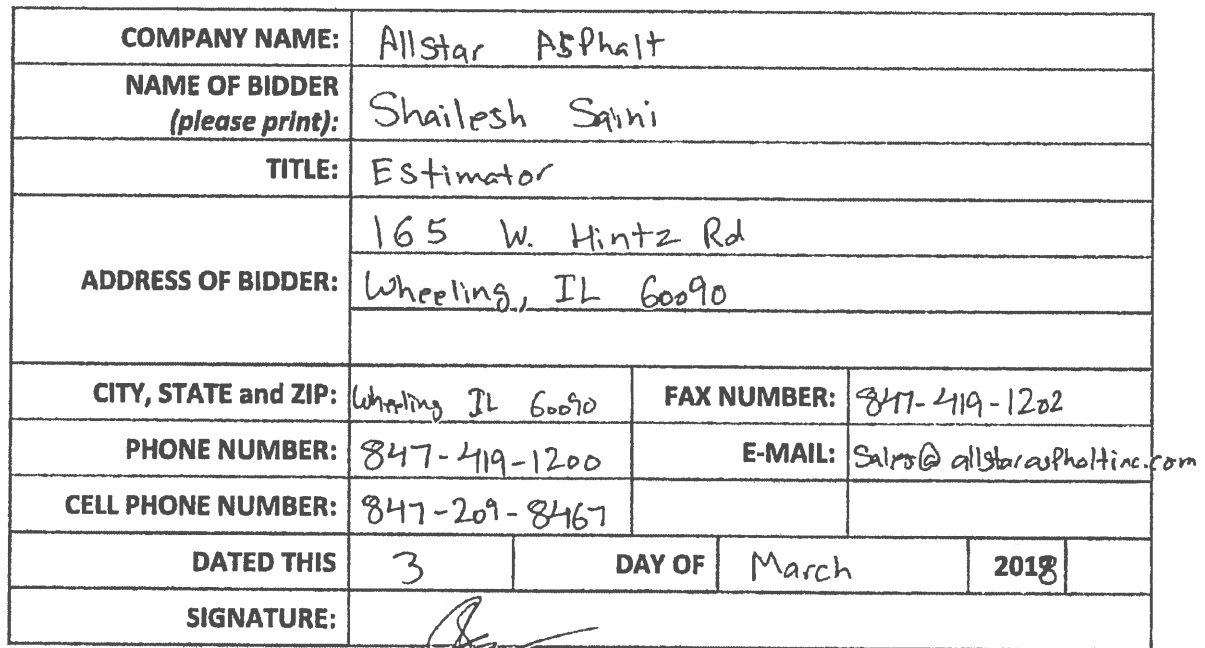 COMPANY NAME: Allstar Asphalt
NAME OF BIDDER
(please print): Shailesh Saini
TITLE: Estimator
165 W. Hintz Rd
ADDRESS OF BIDDER: Wheeling, IL 60090
CITY, STATE and ZIP: Wheeling IL 60090 FAX NUMBER: 847-419-1202
PHONE NUMBER: 847-419-1200 E-MAIL: Sales@allstarasphaltinc.com
CELL PHONE NUMBER: 847-209-8467
DATED THIS 3 DAY OF March 2018
SIGNATURE: